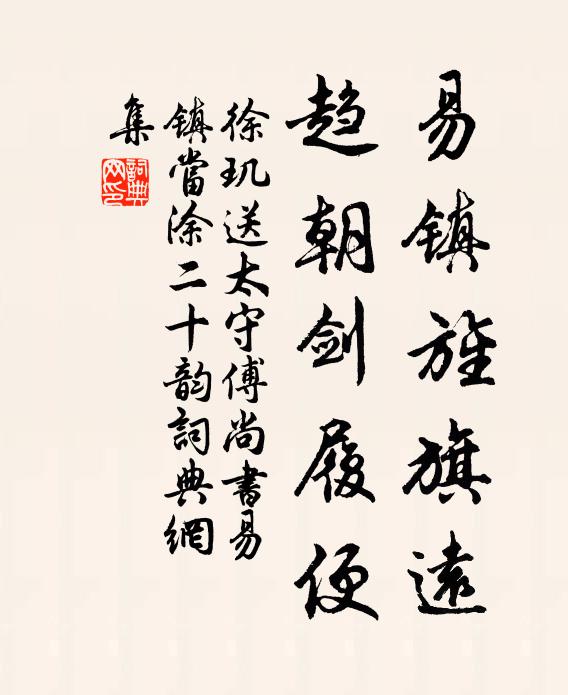 易镇旌旗遠
趋朝剑履便
徐玑送太守傅尚書易
镇當涂二十韵詞典網
集
詞典
网印